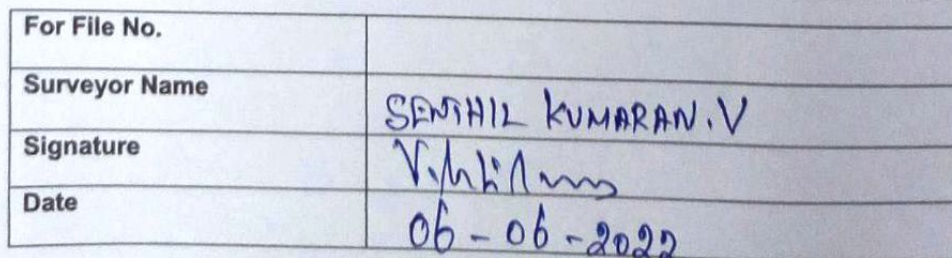 For File No.
Surveyor Name SENTHIL KUMARAN.V
Signature
Date 06-06-2022